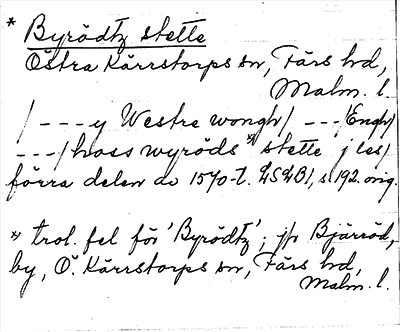 * Byrödtz stette
Östra Kärrstorps sn, Färs hd,
Malm. l.
/ --- y Westre wongh/ --- /Engh/
---/ hoss wyröds *) stette j les/
förra delen av 1570-t. LSLB1, s. 192. orig.
*) trol. fel för 'Byrödtz'; jfr Bjärröd,
by, Ö. Kärrstorps sn, Färs hd,
Malm. l.